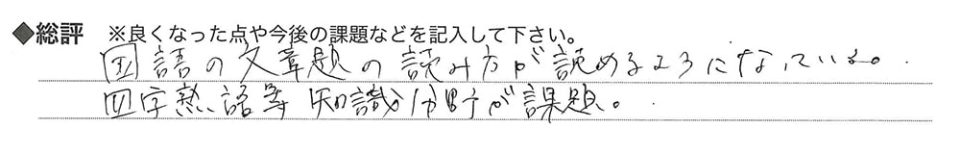 ◆総評 ※良くなった点や今後の課題などを記入して下さい。
国語の文章題の読み方が読めるようになっている。
四字熟語等知識分野が課題。